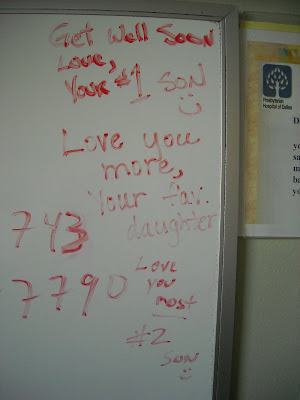 Get Well Soon
Love,
Your #1 SON
Love you
more,
Your fav.
daughter
743
7790
Love
you
most
#2
SON
Presbyterian
Hospital of Dallas
D
yo
sa
m
ba